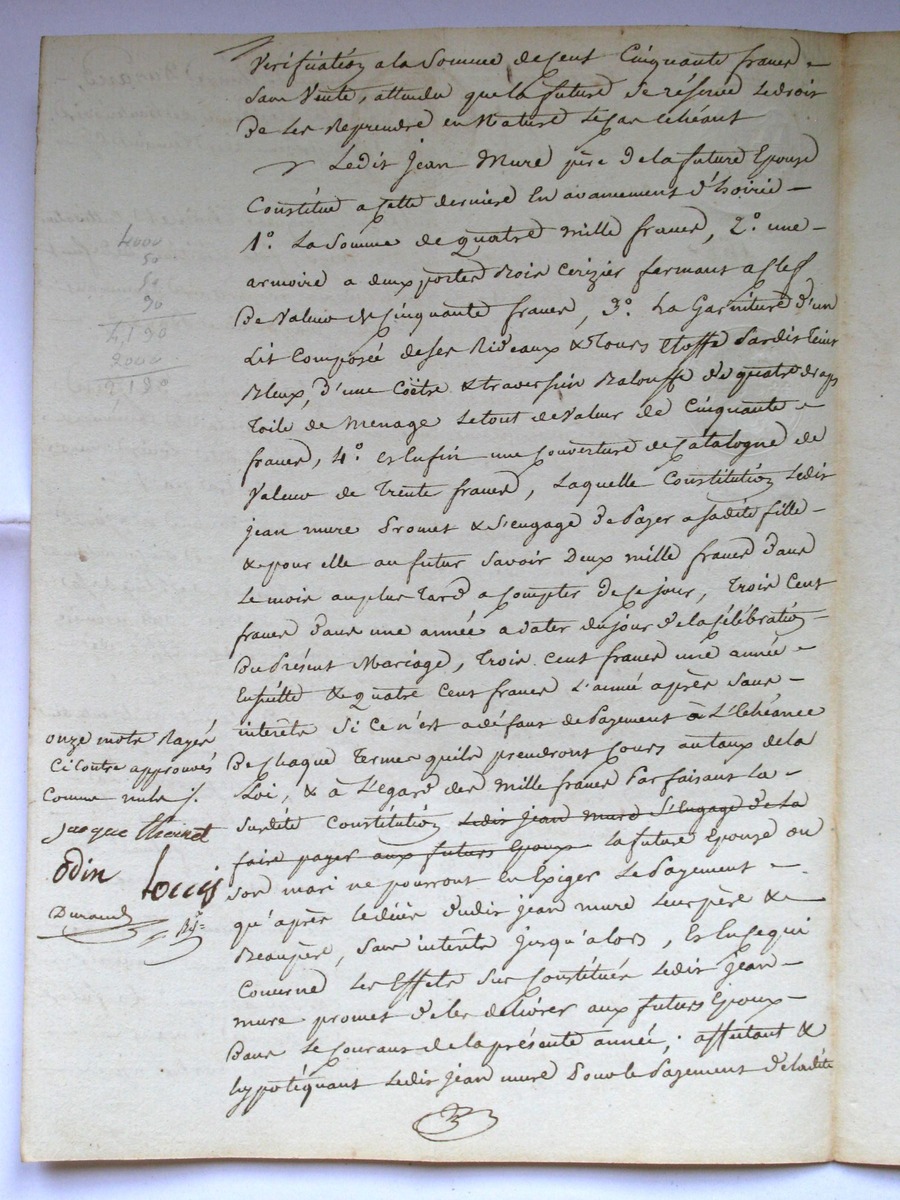 Vérification a la Somme de Cent Cinquante francs -
Sans Vente, attendu que la future se réserve le droit
De les Reprendre en Nature le cas échéant
Ledit Jean Mure père de la future Epouse
Constitué a cette derniere En avancement d'hoirie -
1°. La Somme de quatre mille francs, 2°. une -
armoire a deux portes Bois Cerizier fermant a clef
De Valeur de Cinquante francs, 3°. La Garniture d'un
Lit Composée de ses Rideaux & Tours Etoffe Sardis teint
Bleux, d'une Coëtre & traversin Balouffe de quatre draps
Toile de Menage Le tout de Valeur de Cinquante -
francs, 4°. et Enfin une Couverture de Catalogne de
Valeur de Trente francs, Laquelle Constitution Ledit
Jean mure Promet & S'engage De Payer a sadite fille -
& pour elle au futur Savoir Deux mille francs Dans
Le mois au plus Tard a Compter de ce jour, Trois Cent
francs Dans une année a dater du jour de la Célébration -
Du Présent Mariage, Trois Cent francs une année -
Ensuitte & quatre Cent francs L'année après Sans -
interêts Si ce n'est a défaut de Payement à L'Echéance
De Chaque Termes qu'ils prendront Cours au taux de la
Loi, & à L'égard des Mille francs Parfaisant La -
Susdite Constitution Ledit Jean mure S'engage de La
faire payer aux futurs Epoux La future Epouze ou
Son mari ne pourront en Exiger Le Payement -
qu'après le décès dudit Jean mure Leur père &
Beaupère, Sans interêts jusqu'alors, Et En ce qui
Concerne Les Effets Sus Constitués Ledit Jean -
mure promet de les délivrer aux futurs Epoux -
Dans le Courant de la présente année, affectant &
hypotéquant Ledit Jean mure Pour le Payement de ladite
4000
50
50
30
4,130
2000
onze mots Rayés
Ci Contre approuvés
Comme nuls /.
Jacque
odin
Durand